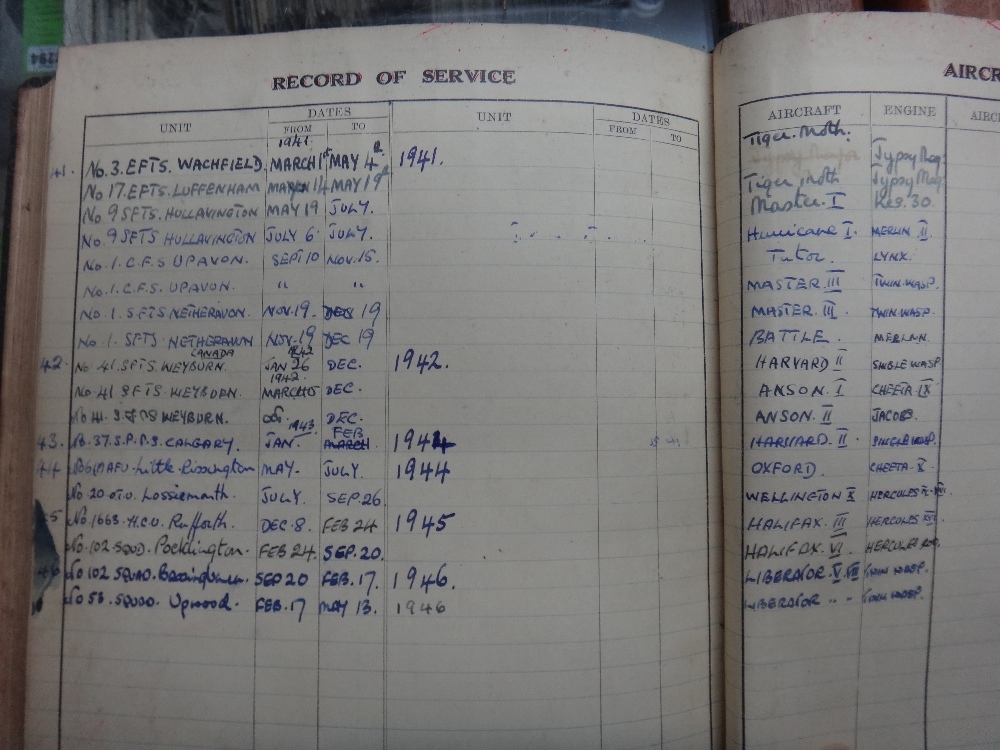 RECORD OF SERVICE
UNIT DATES UNIT DATES
FROM TO FROM TO
1941
41. No. 3. EFTS. WACHFIELD. MARCH 1st MAY 4th 1941.
No 17. EFTS. LUFFENHAM MAY 19th
No 9 SFTS. HULLAVINGTON MAY 19 JULY.
No. 9 SFTS HULLAVINGTON JULY 6 JULY.
No. 1. C.F.S UPAVON. SEPT 10 NOV. 15.
No. 1. C.F.S. UPAVON. " "
No. 1. SFTS NETHERAVON. NOV. 19. DEC 19
No. 1. SFTS. NETHERAVON NOV. 19 DEC 19
CANADA 1942
42. No 41. SFTS. WEYBURN. JAN 26 DEC. 1942.
1942
No. 41 SFTS. WEYBURN. MARCH 15 DEC.
No 41. SFTS WEYBURN. DEC.
1943 FEB
43. No. 37. S.F.T.S. CALGARY. JAN MARCH 1944
44 AFU. Little Rissington MAY. JULY. 1944
No. 20. O.T.U. Lossiemouth. JULY. SEP. 26.
45 No. 1663. H.C.U. Rufforth. DEC. 8. FEB 24 1945
No. 102. SQUD. Pocklington. FEB 24. SEP. 20.
46 No 102 SQUAD. Bassingbourn. SEP 20 FEB. 17. 1946.
No 53. SQUAD. Upwood. FEB. 17 MAY 13. 1946
AIRCR
AIRCRAFT ENGINE AIRC
Tiger. Moth.
Gypsy Maj:
Tiger Moth Gypsy Maj:
Master. I Kes. 30.
Hurricane I. MERLIN II.
Tutor. LYNX.
MASTER. III TWIN WASP.
MASTER. III. TWIN WASP.
BATTLE. MERLIN.
HARVARD II SINGLE WASP
ANSON. I CHEETA IX
ANSON. II JACOBS.
HARVARD. II. SINGLE WASP.
OXFORD. CHEETA. X.
WELLINGTON X HERCULES
HALIFAX. III HERCULES XVI.
HALIFAX. VI. HERCULES
LIBERATOR. V. VIII TWIN WASP.
LIBERATOR " " TWIN WASP.